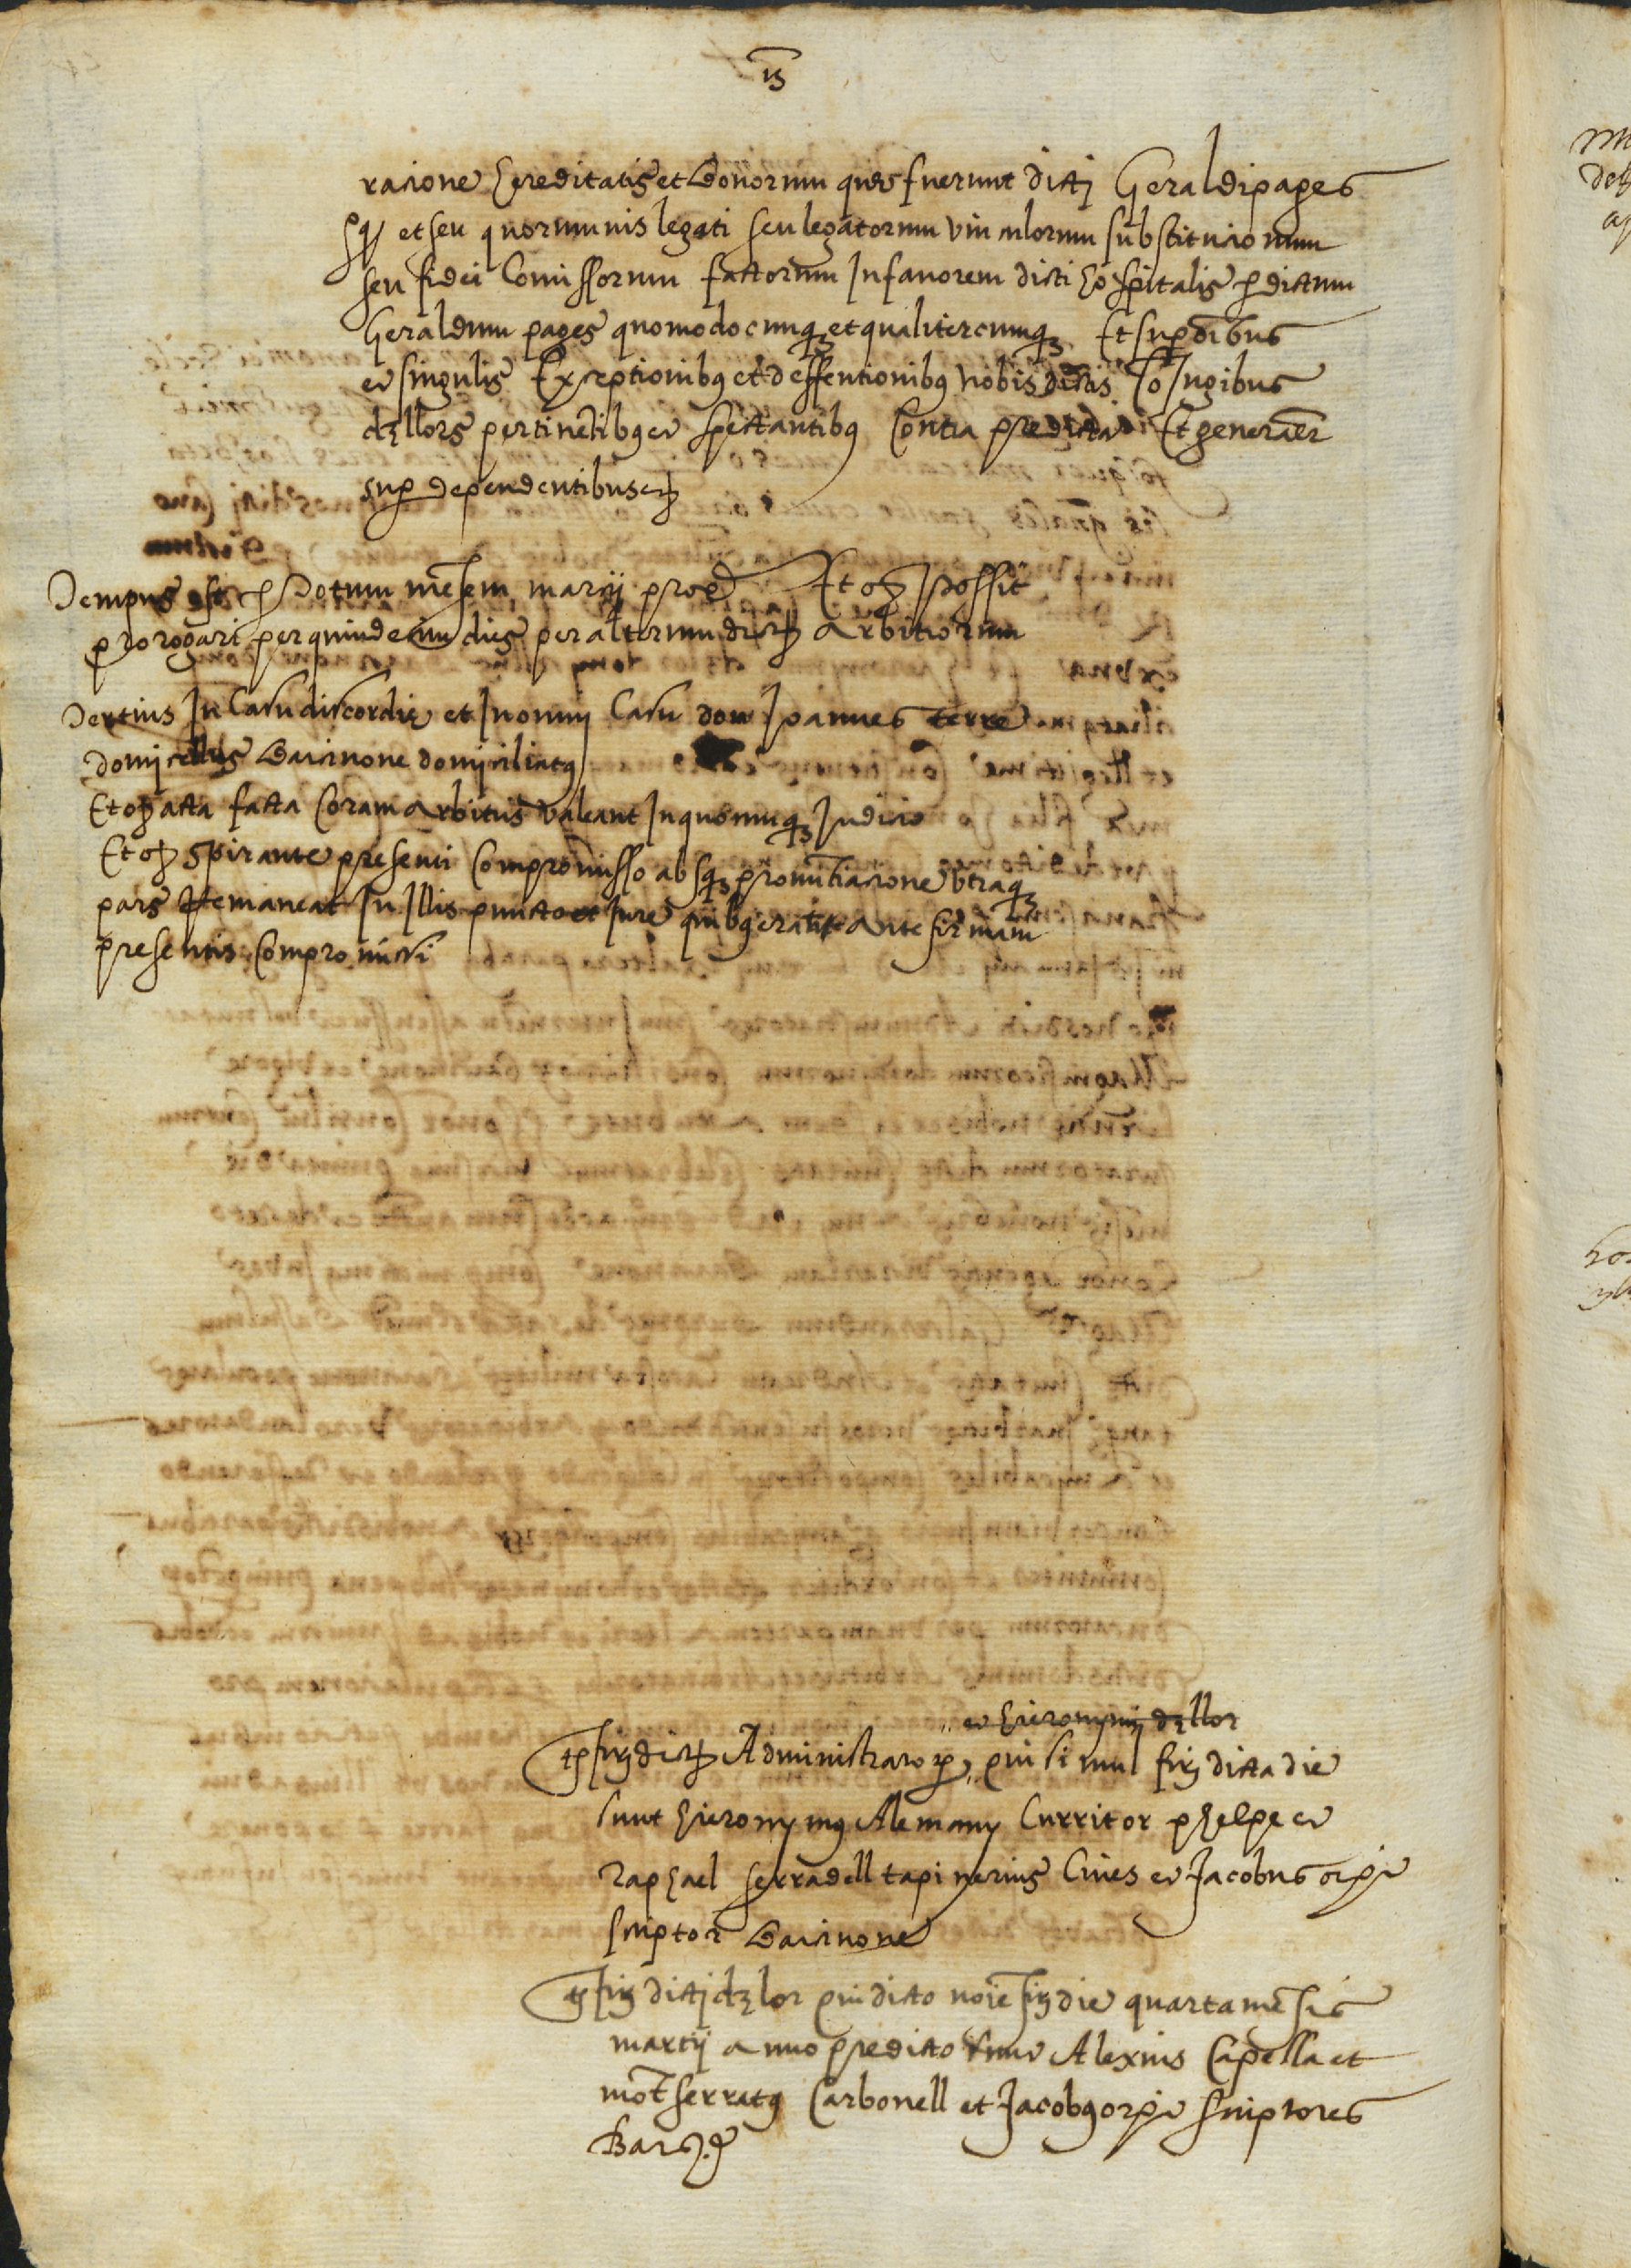 racione hereditatis et bonorum que fuerunt dicti Geraldi pages
et seu quorumvis legati seu legatorum vinculorum substitucionum
seu fidei Comissorum factorum In favorem dicti hospitalis p dictum
Geraldum pages quomodocumq et qualitercumq Et sup oibus
et singulis Exceptionibq et deffentionibq nobis dictis Coniugibus
dezllors pertinetibq et spectantibq Contra predicta Et generaer
sup dependentibus etz
Tempus est p totum mesem marcij proxe Et q possit
prorogari per quindecim dies per alterum dictz Arbitrorum
Tertius In Casu discordie et In omni Casu don Joannes terre
domicellus Barcinone domiciliatq
Et q acta facta Coram Arbitris valeant In quocumq Judicio
Et q spirante presenti Compromisso absq pronutiacione utraq
pars Remaneat In Illis puncto et Jure quibq erat Ante firmam
presentis Compromissi
et hieronymi dezllor
ts fir dictz Administratorz, qui simul fir dicta die
sunt hieronymq Alemany Curritor phelpe et
Raphael serradell tapinerius Cives et Jacobus orpi
scriptor Barcinone
ts fir dicti dezlor qui dicto noie fir die quarta mesis
marcij anno predicto sunt Alexius Capella et
motserratq Carbonell et Jacobq orpi scriptores
Barne